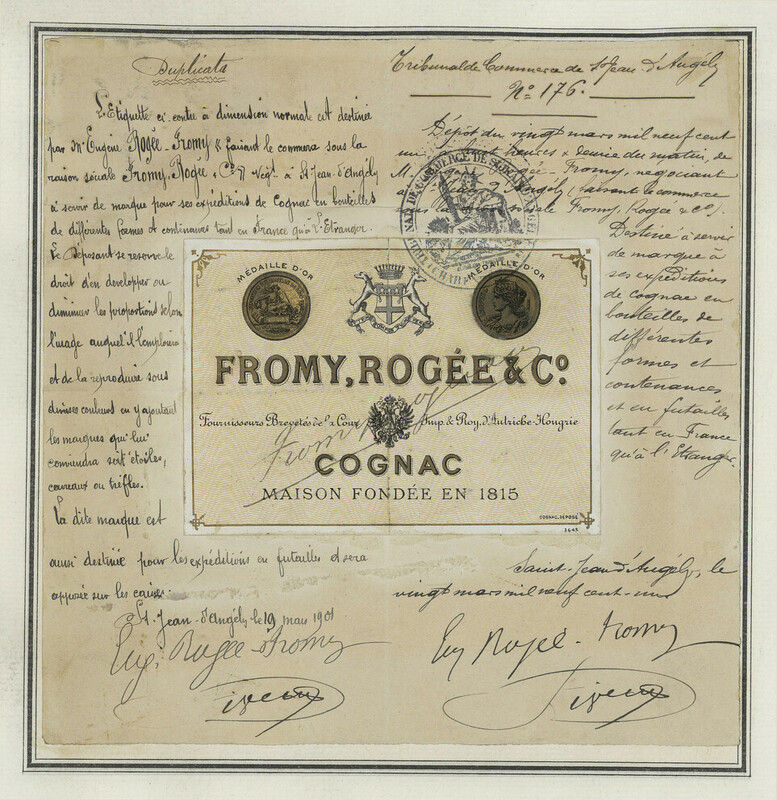 Duplicata
L'Etiquette ci-contre à dimension normale est destinée
par Mr Eugène Rogée-Fromy faisant le commerce sous la
raison sociale Fromy, Rogée & Co Negt à St Jean-d'Angély
à servir de marque pour ses expéditions de Cognac en bouteilles
de différentes formes et continances tant en France qu'à l'Etranger.
Le Déposant se reserve le
droit d'en developper ou
diminuer les proportions selon
l'usage auquel il l'emploiera
et de la reproduire sous
diverses couleurs en y ajoutant
les marques qui lui
conviendra soit étoiles,
carreaux ou trèfles.
La dite marque est
aussi destinée pour les expéditions en futailles et sera
apposée sur les caisses.
St-Jean-d'Angély le 19 mars 1901
Eug. Rogée-Fromy
Tribunal de Commerce de St Jean-d'Angély
No 176.
Dépôt du vingt mars mil neuf cent
un heures & demie du matin, de
M. Rogée-Fromy, négociant
à Angély, faisant le commerce
Fromy, Rogée & Co.
Destiné à servir
de marque à
ses expéditions
de cognac en
bouteilles de
différentes
formes et
contenances
et en futailles
tant en France
qu'à l'Etranger.
Saint-Jean-d'Angély, le
vingt mars mil neuf cent-un
Eug Rogée-Fromy
MÉDAILLE D'OR
MÉDAILLE D'OR
FROMY, ROGÉE & Co.
Fournisseurs Brevetés de la Cour Imp. & Roy. d'Autriche-Hongrie
COGNAC
MAISON FONDÉE EN 1815
COGNAC, DÉPOSÉ